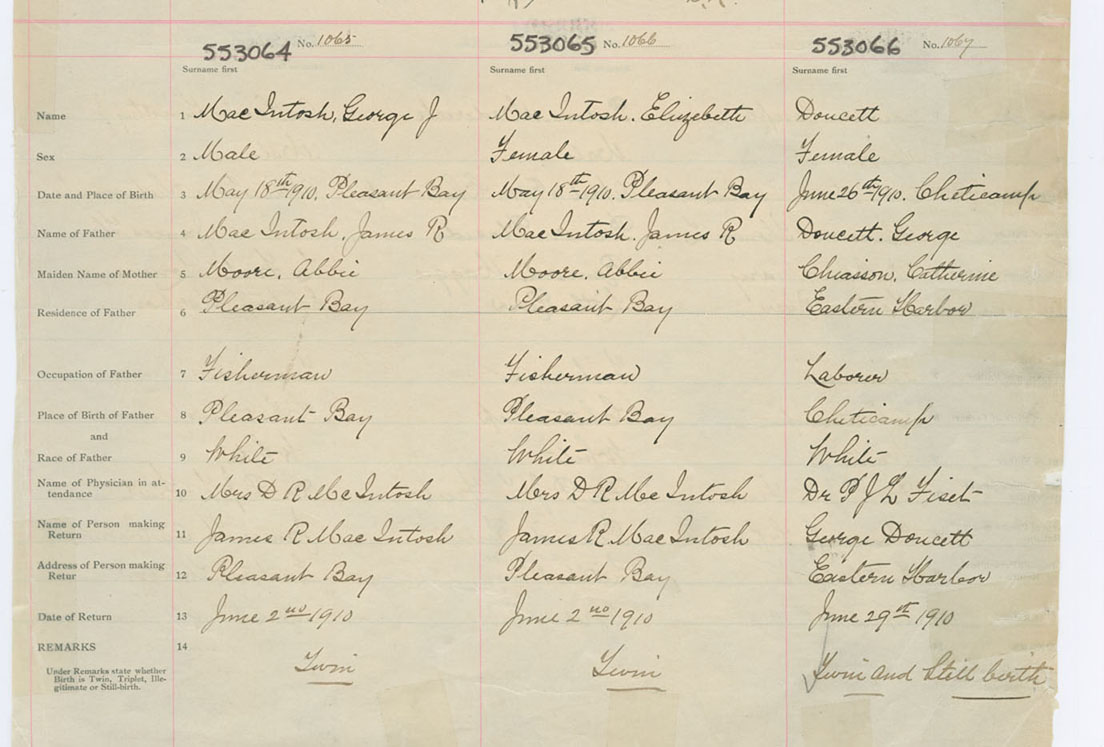 553064 No. 1065 553065 No. 1066 553066 No. 1067
Surname first Surname first Surname first
Name 1 Mac Intosh, George J Mac Intosh. Elizebeth Doucett
Sex 2 Male Female Female
Date and Place of Birth 3 May 18th 1910. Pleasant Bay May 18th 1910. Pleasant Bay June 26th 1910. Cheticamp
Name of Father 4 Mac Intosh. James R Mac Intosh. James R Doucett. George
Maiden Name of Mother 5 Moore. Abbie Moore. Abbie Chiasson. Catherine
Residence of Father 6 Pleasant Bay Pleasant Bay Eastern Harbor
Occupation of Father 7 Fisherman Fisherman Laborer
Place of Birth of Father 8 Pleasant Bay Pleasant Bay Cheticamp
and
Race of Father 9 White White White
Name of Physician in at-
tendance 10 Mrs D R Mc Intosh Mrs D R Mc Intosh Dr P J L Fiset
Name of Person making
Return 11 James R Mac Intosh James R Mac Intosh George Doucett
Address of Person making
Retur 12 Pleasant Bay Pleasant Bay Eastern Harbor
Date of Return 13 June 2no 1910 June 2no 1910 June 29st 1910
REMARKS 14
Under Remarks state whether
Birth is Twin, Triplet, Ille-
gitimate or Still-birth.
Twin Twin Twin and Still birth